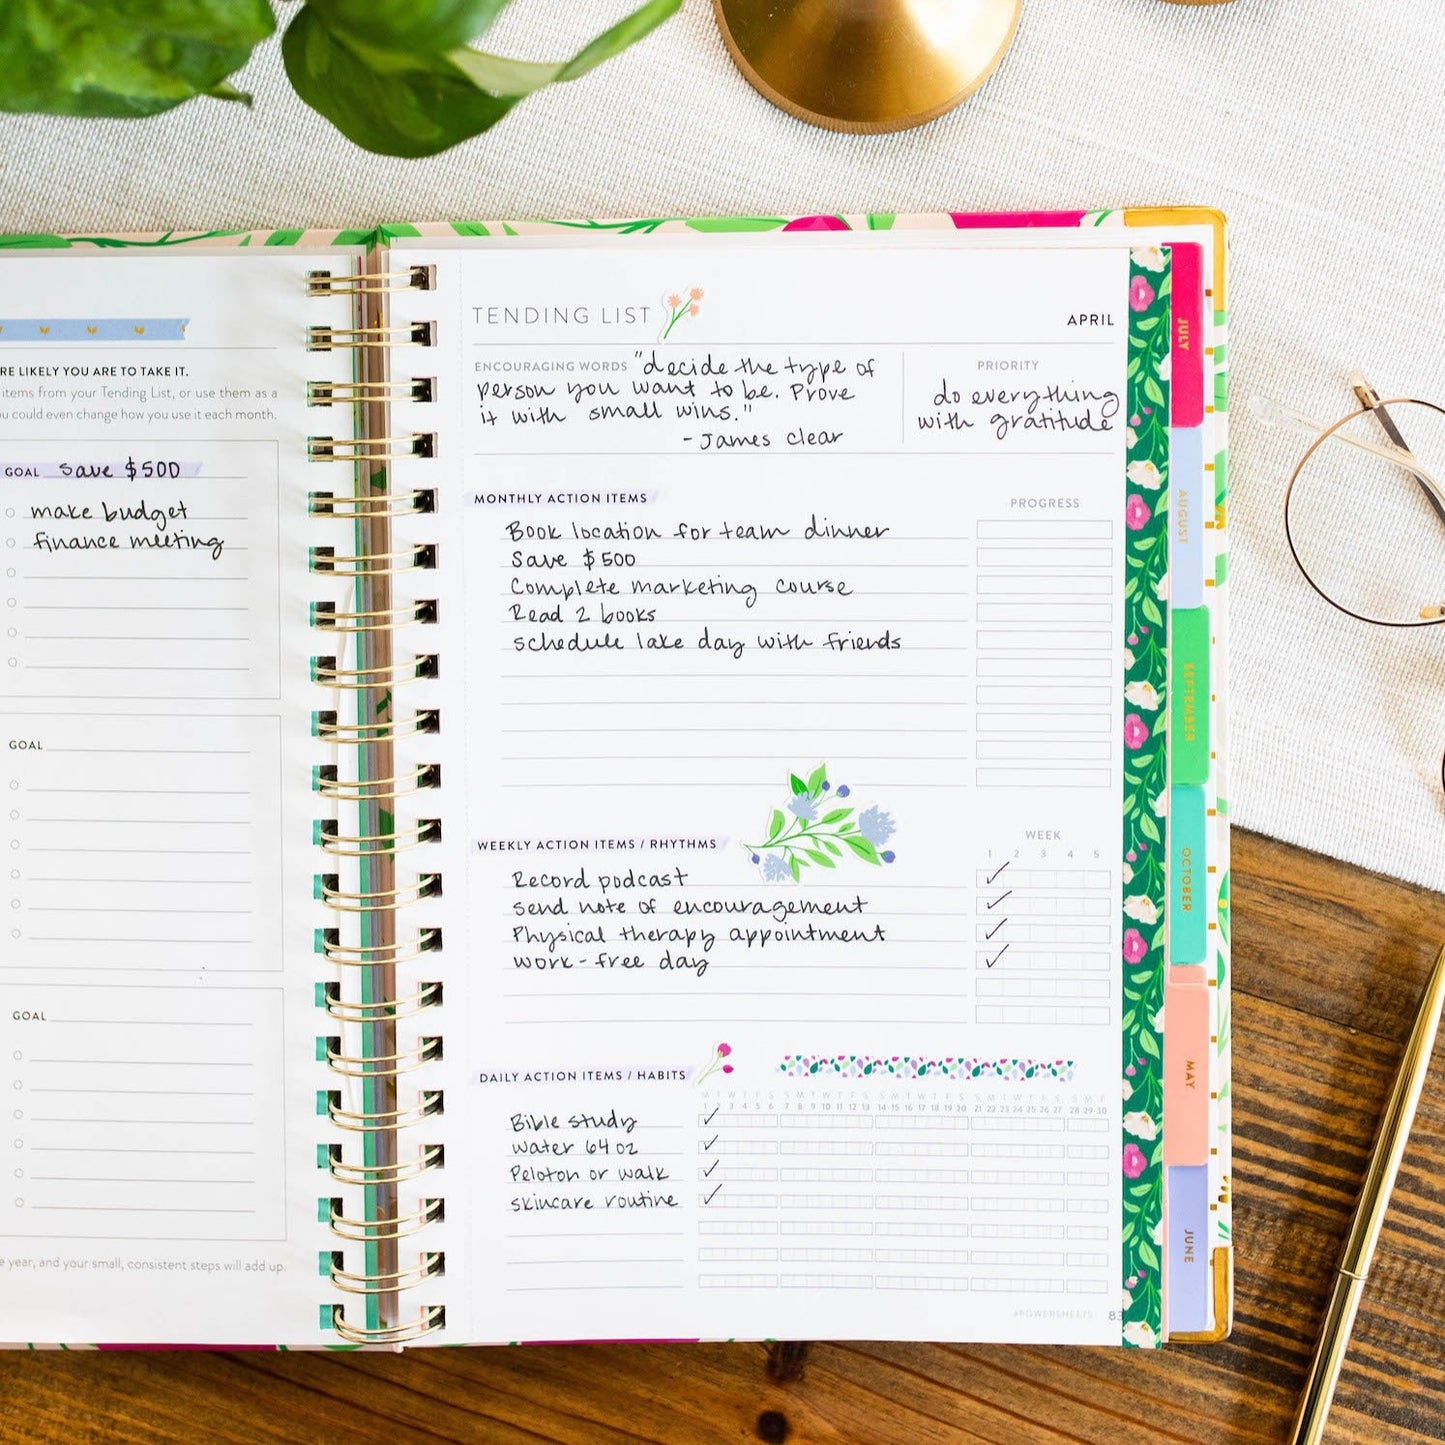 RE LIKELY YOU ARE TO TAKE IT.
items from your Tending List, or use them as a
u could even change how you use it each month.
GOAL save $500
make budget
finance meeting
GOAL
GOAL
e year, and your small, consistent steps will add up.
TENDING LIST
APRIL
ENCOURAGING WORDS "decide the type of
person you want to be. Prove
it with small wins."
- James Clear
PRIORITY
do everything
with gratitude
MONTHLY ACTION ITEMS
PROGRESS
Book location for team dinner
Save $500
Complete marketing course
Read 2 books
schedule lake day with friends
WEEKLY ACTION ITEMS / RHYTHMS
WEEK
1 2 3 4 5
Record podcast
send note of encouragement
Physical therapy appointment
work-free day
DAILY ACTION ITEMS / HABITS
3 4 5 6 7 8 9 10 11 12 13 14 15 16 17 18 19 20 21 22 23 24 25 26 27 28 29 30
Bible study
water 64 oz
Peloton or walk
skincare routine
#POWERSHEETS 83
JULY
AUGUST
SEPTEMBER
OCTOBER
MAY
JUNE